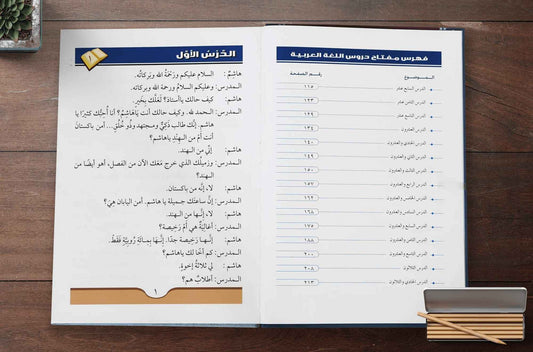 فهرس مفتاح دروس اللغة العربية
الموضوع رقم الصفحة
الدرس السابع عشر ١١٥
الدرس الثامن عشر ١٢٣
الدرس التاسع عشر ١٢٩
الدرس العشرون ١٣٤
الدرس الحادي والعشرون ١٤٠
الدرس الثاني والعشرون ١٤٩
الدرس الثالث والعشرون ١٥٠
الدرس الرابع والعشرون ١٥٧
الدرس الخامس والعشرون ١٦٢
الدرس السادس والعشرون ١٦٨
الدرس السابع والعشرون ١٧٥
الدرس الثامن والعشرون ١٨٨
الدرس التاسع والعشرون ٢٠٠
الدرس الثلاثون ٢٠٨
الدرس الحادي والثلاثون ٢١٣
الدَّرْسُ الأوَّل ١
هاشِمٌ: السلام عليكم ورَحْمَةُ الله وبَركاتُه.
المدرس: وعليكم السلامُ ورحمة الله وبركاتُه.
هاشم: كيف حالك ياأستاذُ؟ لعلَّك بخيرٍ.
المدرس: الحمد لله. وكيف حالك أنت يَاهَاشِمُ؟ أنا أُحِبُّك كثيرًا يا
هاشم. إنَّك طالب ذَكِيٌّ ومجتهد وذُو خُلُقٍ... أمن باكستان
أنت أمْ من الهِنْدِ ياهاشم؟
هاشم: إنِّي من الهند.
المدرس: وزميلُك الذي خرج مَعَك الآن من الفصل، أهو أيضًا من
الهند؟
هاشم: لا، إنَّه من باكستان.
المدرس: إنَّ ساعتَك جميلة يا هاشم. أمن اليابان هِيَ؟
هاشم: لا، إنَّها من الهند.
المدرس: أغاليَةٌ هي أَمْ رَخِيصة؟
هاشم: إنَّها رَخِيصة جدًا. إنَّها بِمِائَةِ رُوبِيَّةٍ فَقَطْ.
المدرس: كم أخًا لك ياهاشم؟
هاشم: لي ثلاثةُ إخوةٍ.
المدرس: أطلابٌ هم؟
١